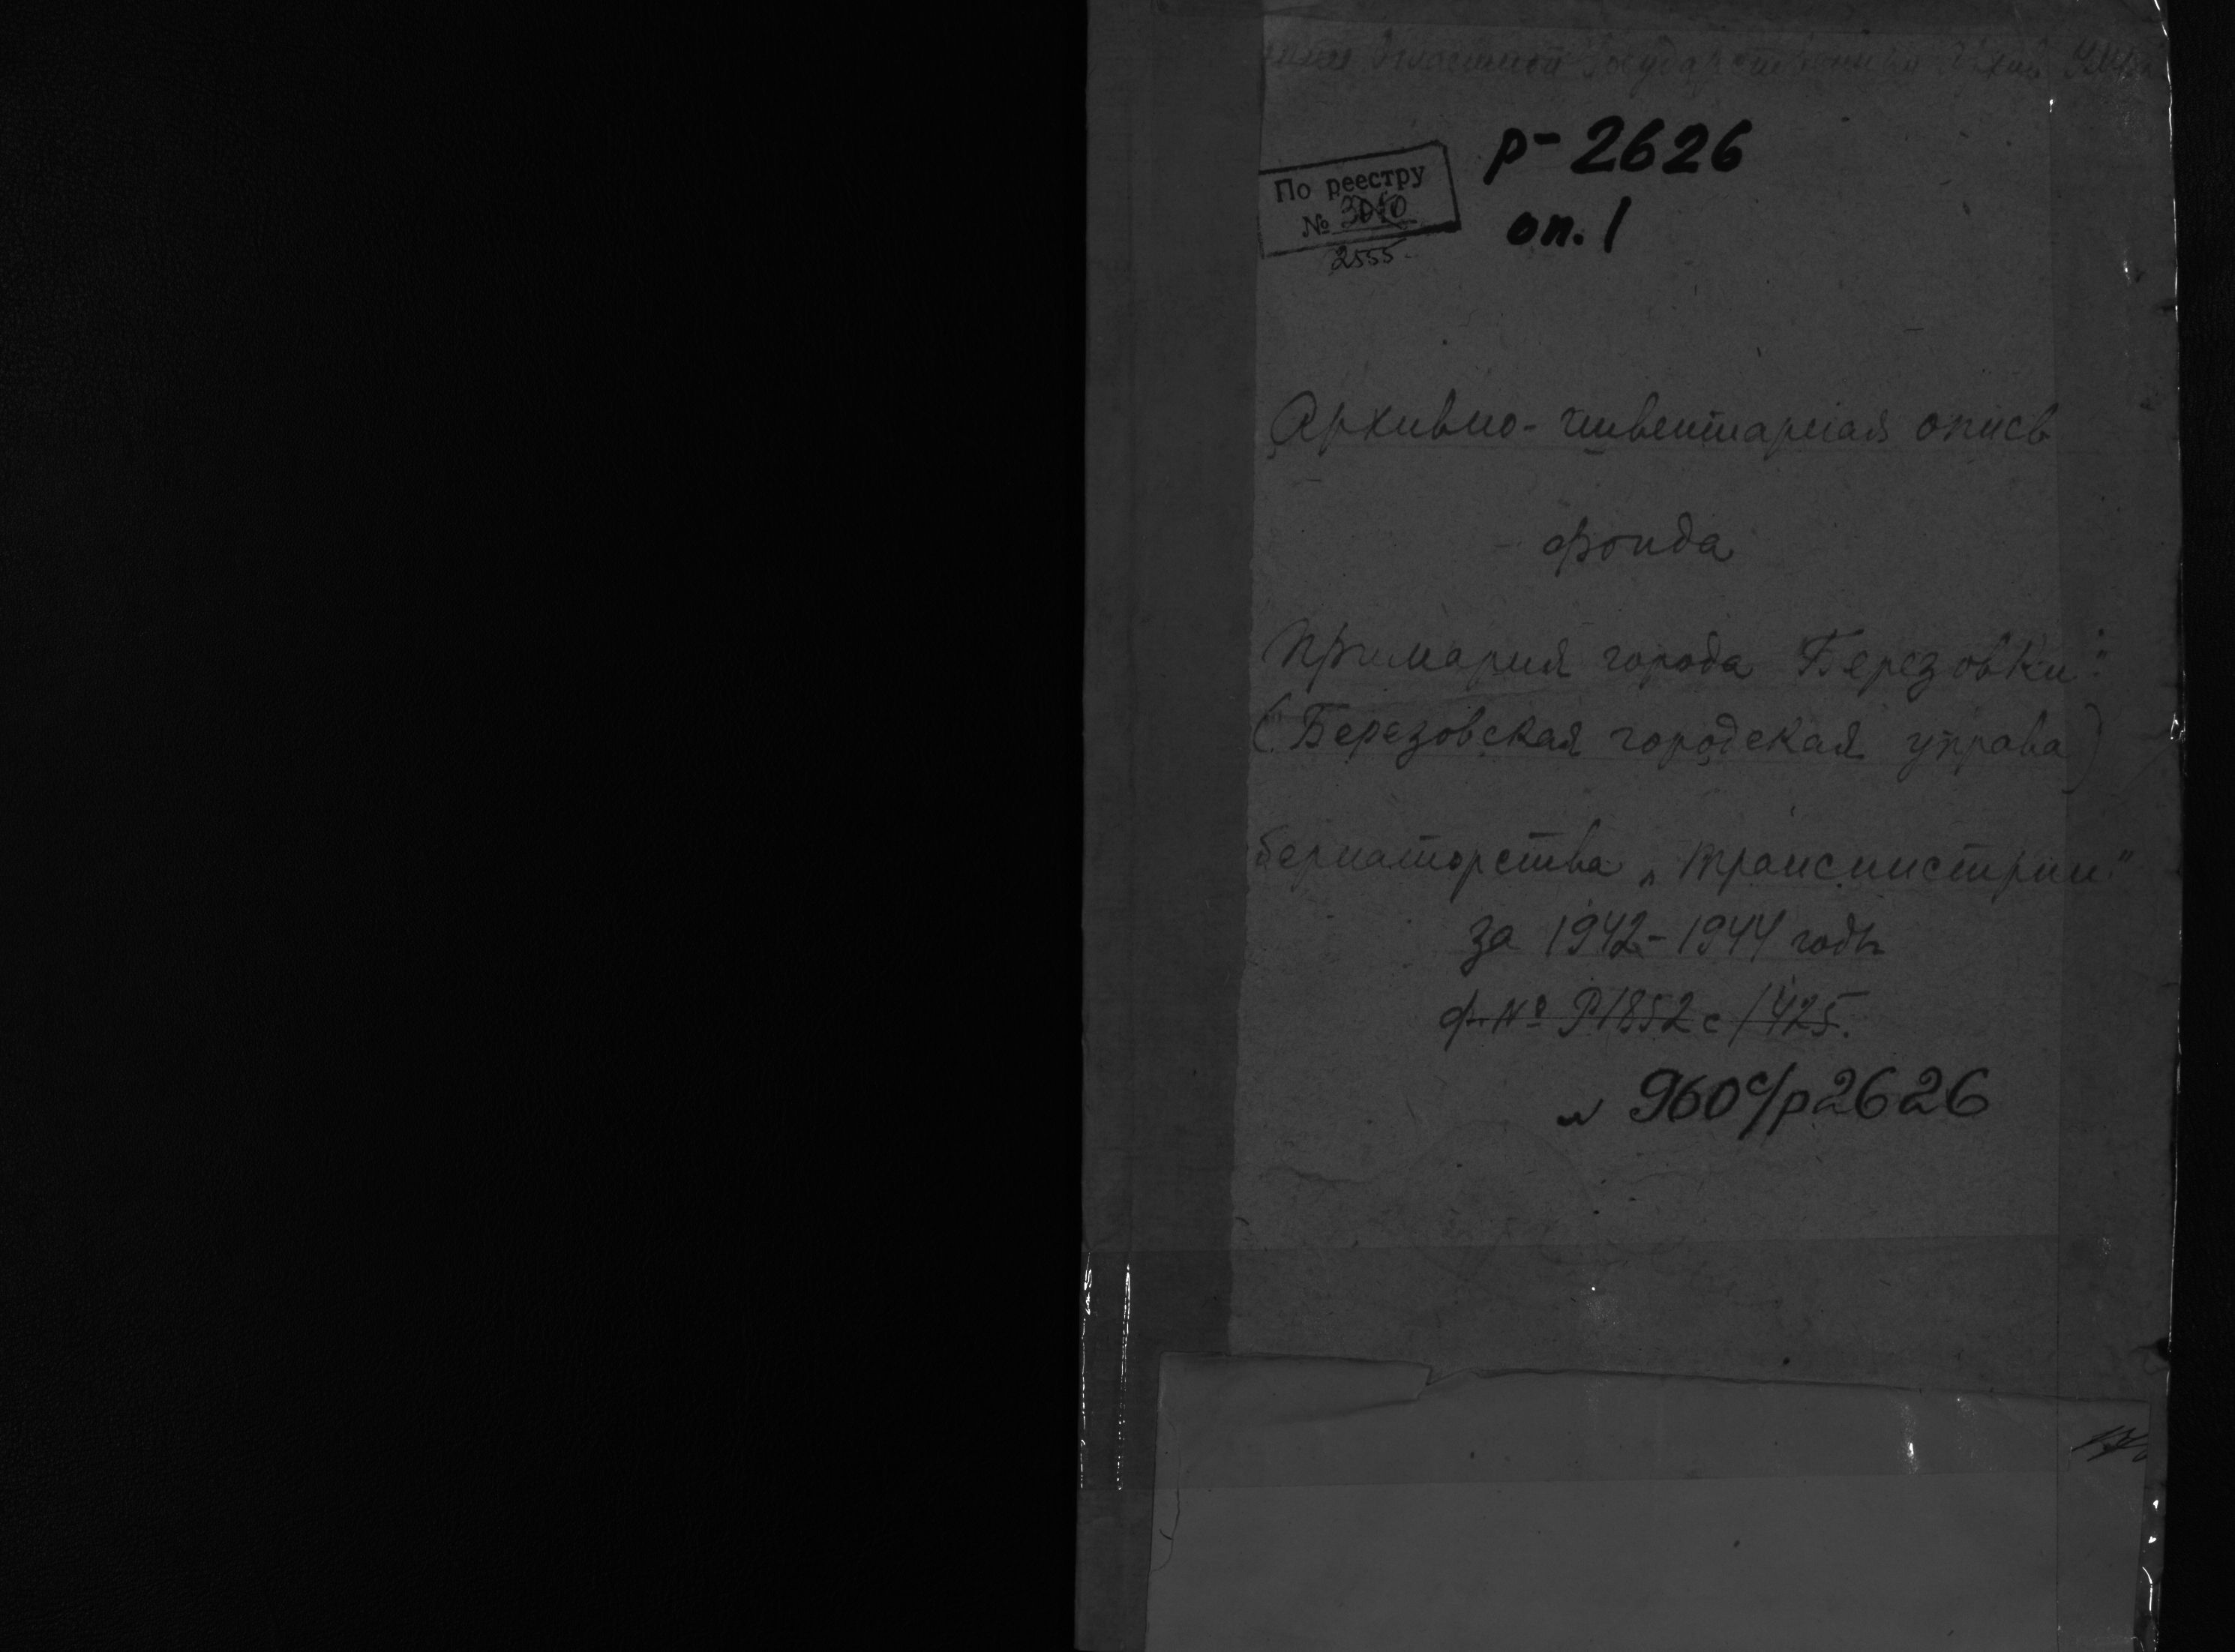 Областной Государственный Архив
р-2626
По реестру
№ 3010
2555.
оп. 1
Архивно-инвентарная опись
фонда
Примария города Березовки"
("Березовская городская управа)
бернаторства „Транснистрии"
за 1942-1944 годы
ф. № Р1852 с/425.
№ 960с/р2626